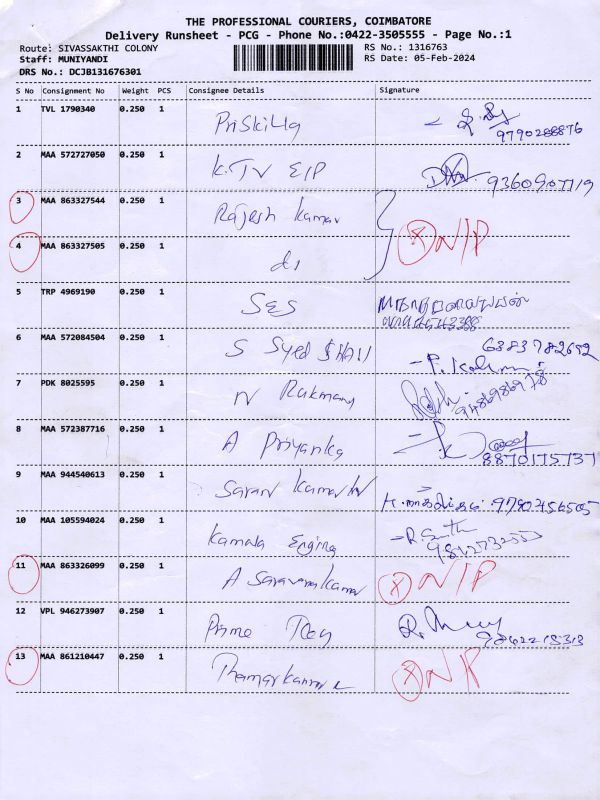 THE PROFESSIONAL COURIERS, COIMBATORE
Delivery Runsheet - PCG - Phone No.:0422-3505555 - Page No.:1
Route: SIVASSAKTHI COLONY RS No.: 1316763
Staff: MUNIYANDI RS Date: 05-Feb-2024
DRS No.: DCJB131676301
S No Consignment No Weight PCS Consignee Details Signature
1 TVL 1790340 0.250 1 Priskilla
9790288876
2 MAA 572727050 0.250 1 K.TV EIP 9360907119
3 MAA 863327544 0.250 1 Rajesh Kumar
N/P
4 MAA 863327505 0.250 1 do
5 TRP 4969190 0.250 1 SES
6 MAA 572084504 0.250 1 S Syed 6383782652
7 PDK 8025595 0.250 1 N Rukmany
9486986978
8 MAA 572387716 0.250 1 A Priyanka
8870175737
9 MAA 944540613 0.250 1 Saran Kumar 9790456505
10 MAA 105594024 0.250 1 Kamala Engine
11 MAA 863326099 0.250 1 A Saravanakumar N/P
12 VPL 946273907 0.250 1 Prime
9862215313
13 MAA 861210447 0.250 1 N/P